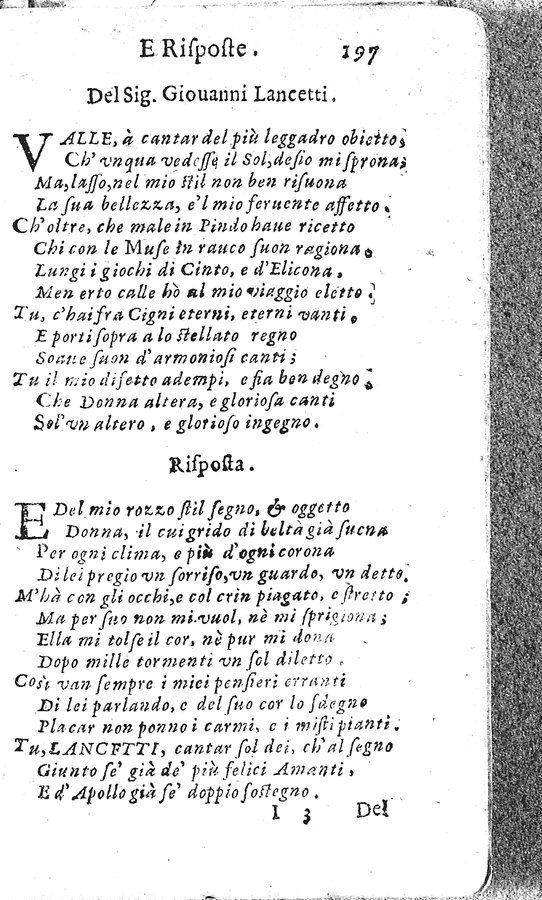 E Riſpoſte. 197
Del Sig. Giouanni Lancetti.
VALLE, à cantar del più leggadro obietto;
Ch' vnqua vedeſſe il Sol, deſio mi ſprona;
Ma, laſſo, nel mio ſtil non ben riſuona
La ſua bellezza, e'l mio feruente affetto.
Ch' oltre, che male in Pindo haue ricetto
Chi con le Muſe in rauco ſuon ragiona.
Lungi i giochi di Cinto, e d'Elicona,
Men erto calle hò al mio viaggio eletto.
Tu, c'hai fra Cigni eterni, eterni vanti.
E porti ſopra a lo ſtellato regno
Soaue ſuon d'armonioſi canti;
Tu il mio difetto adempi, e ſia ben degno,
Che Donna altera, e glorioſa canti
Sol' vn altero, e glorioſo ingegno.
Riſpoſta.
E Del mio rozzo ſtil ſegno, & oggetto
Donna, il cui grido di beltà già ſuona
Per ogni clima, e più d'ogni corona
Di lei pregio vn ſorriſo, vn guardo, vn detto.
M'hà con gli occhi, e col crin piagato, e ſtretto;
Ma per ſuo non mi vuol, nè mi ſprigiona;
Ella mi tolſe il cor, nè pur mi dona
Dopo mille tormenti vn ſol diletto.
Così van ſempre i miei penſieri erranti
Di lei parlando, e del ſuo cor lo ſdegno
Placar non ponno i carmi, e i miſti pianti.
Tu, LANCETTI, cantar ſol dei, ch'al ſegno
Giunto ſe' già de' più felici Amanti,
E d'Apollo già ſe' doppio ſoſtegno.
I 3 Del